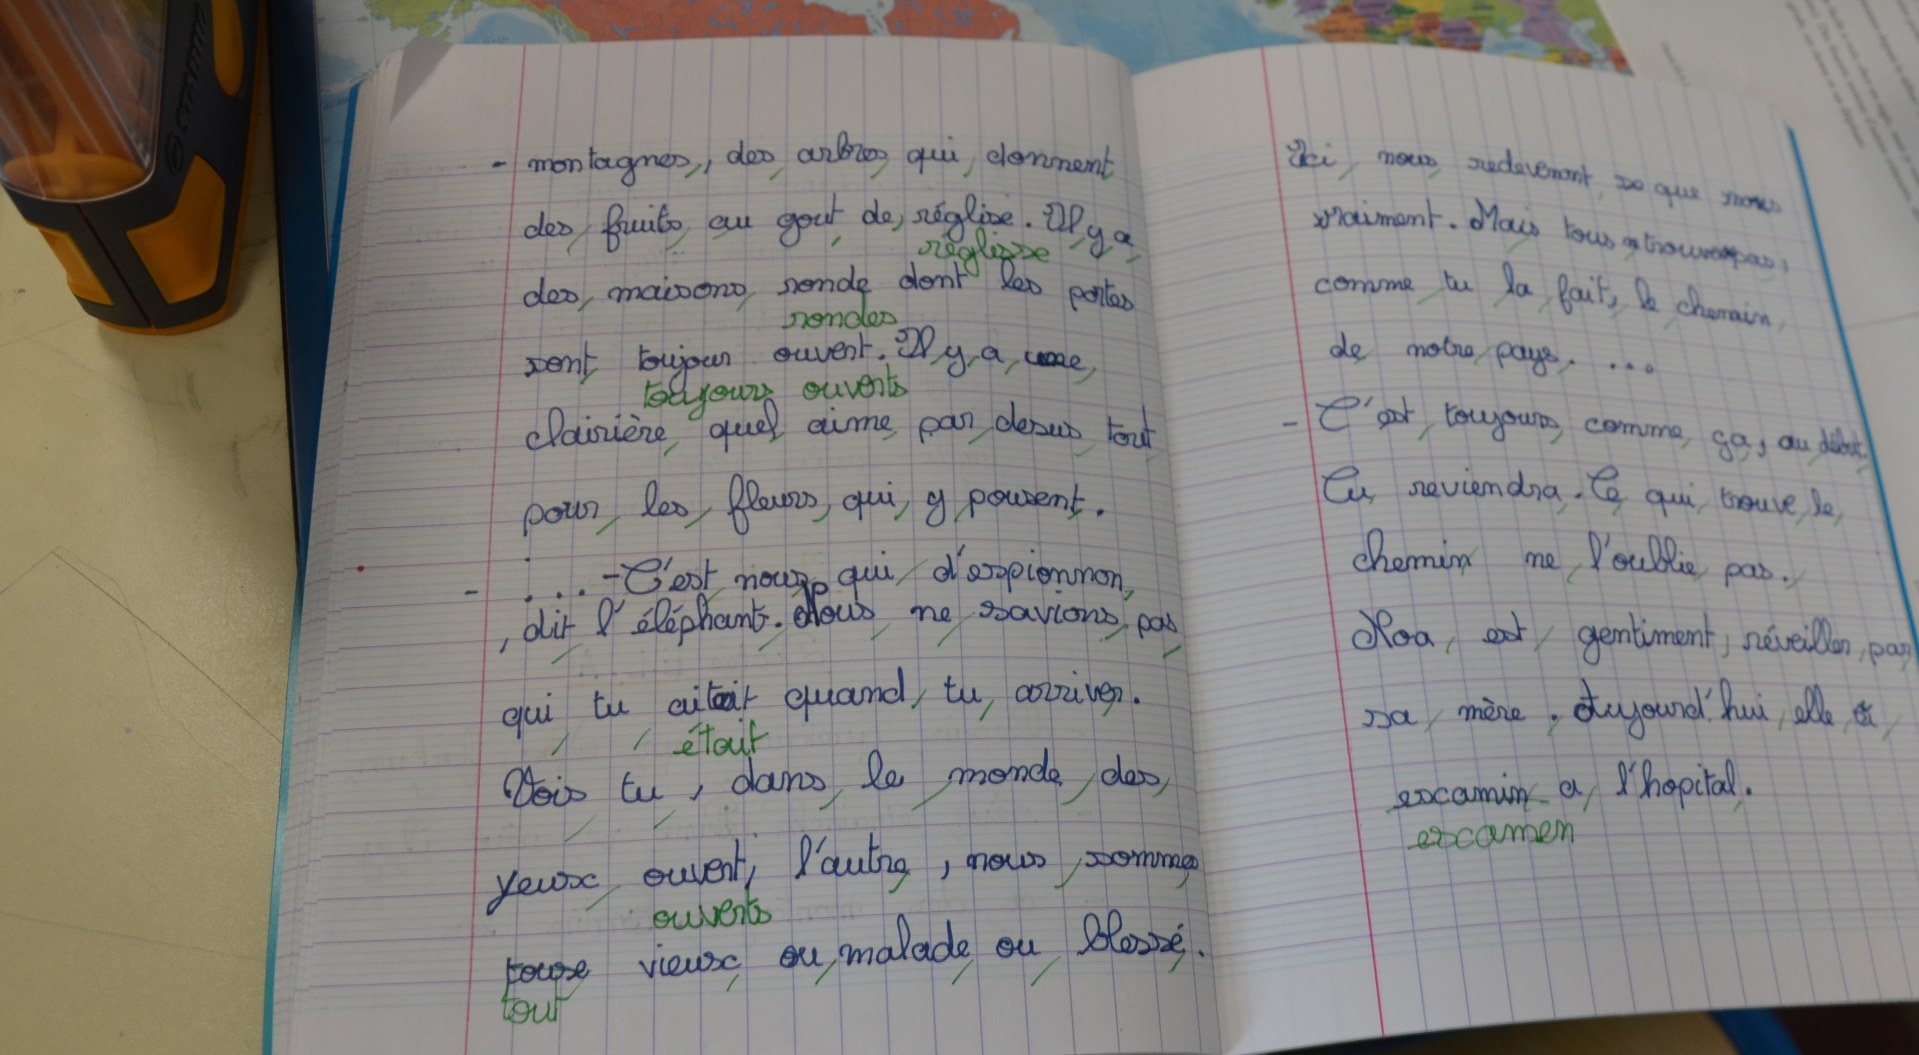 - montagnes, des arbres qui donnent
des fruits au gout de réglise. Il y a
réglisse
des maisons ronde dont les portes
rondes
sont toujour ouvent. Il y a une
toujours ouvents
clairière quel aime par desus tout
pour les fleurs qui y pousent.
- .... - C'est nous qui d'espionnon,
, dit l'éléphant. Nous ne savions pas
qui tu aitait quand tu arriver.
étout
Vois tu, dans le monde des
yeux ouvent, l'autre, nous somme
ouvents
touse vieux ou malade ou blessé.
tout
Ici, nous redevenont se que nous
vraiment. Mais tous trouve pas,
comme tu la fait, le chemin,
de notre pays. ...
- C'est toujours comme ça, au début.
Tu reviendra. Ce qui trouve le
chemin ne l'oublie pas.
Noa est gentiment réveiller par
sa mère. Aujourd'hui elle a
examin a l'hopital.
examen